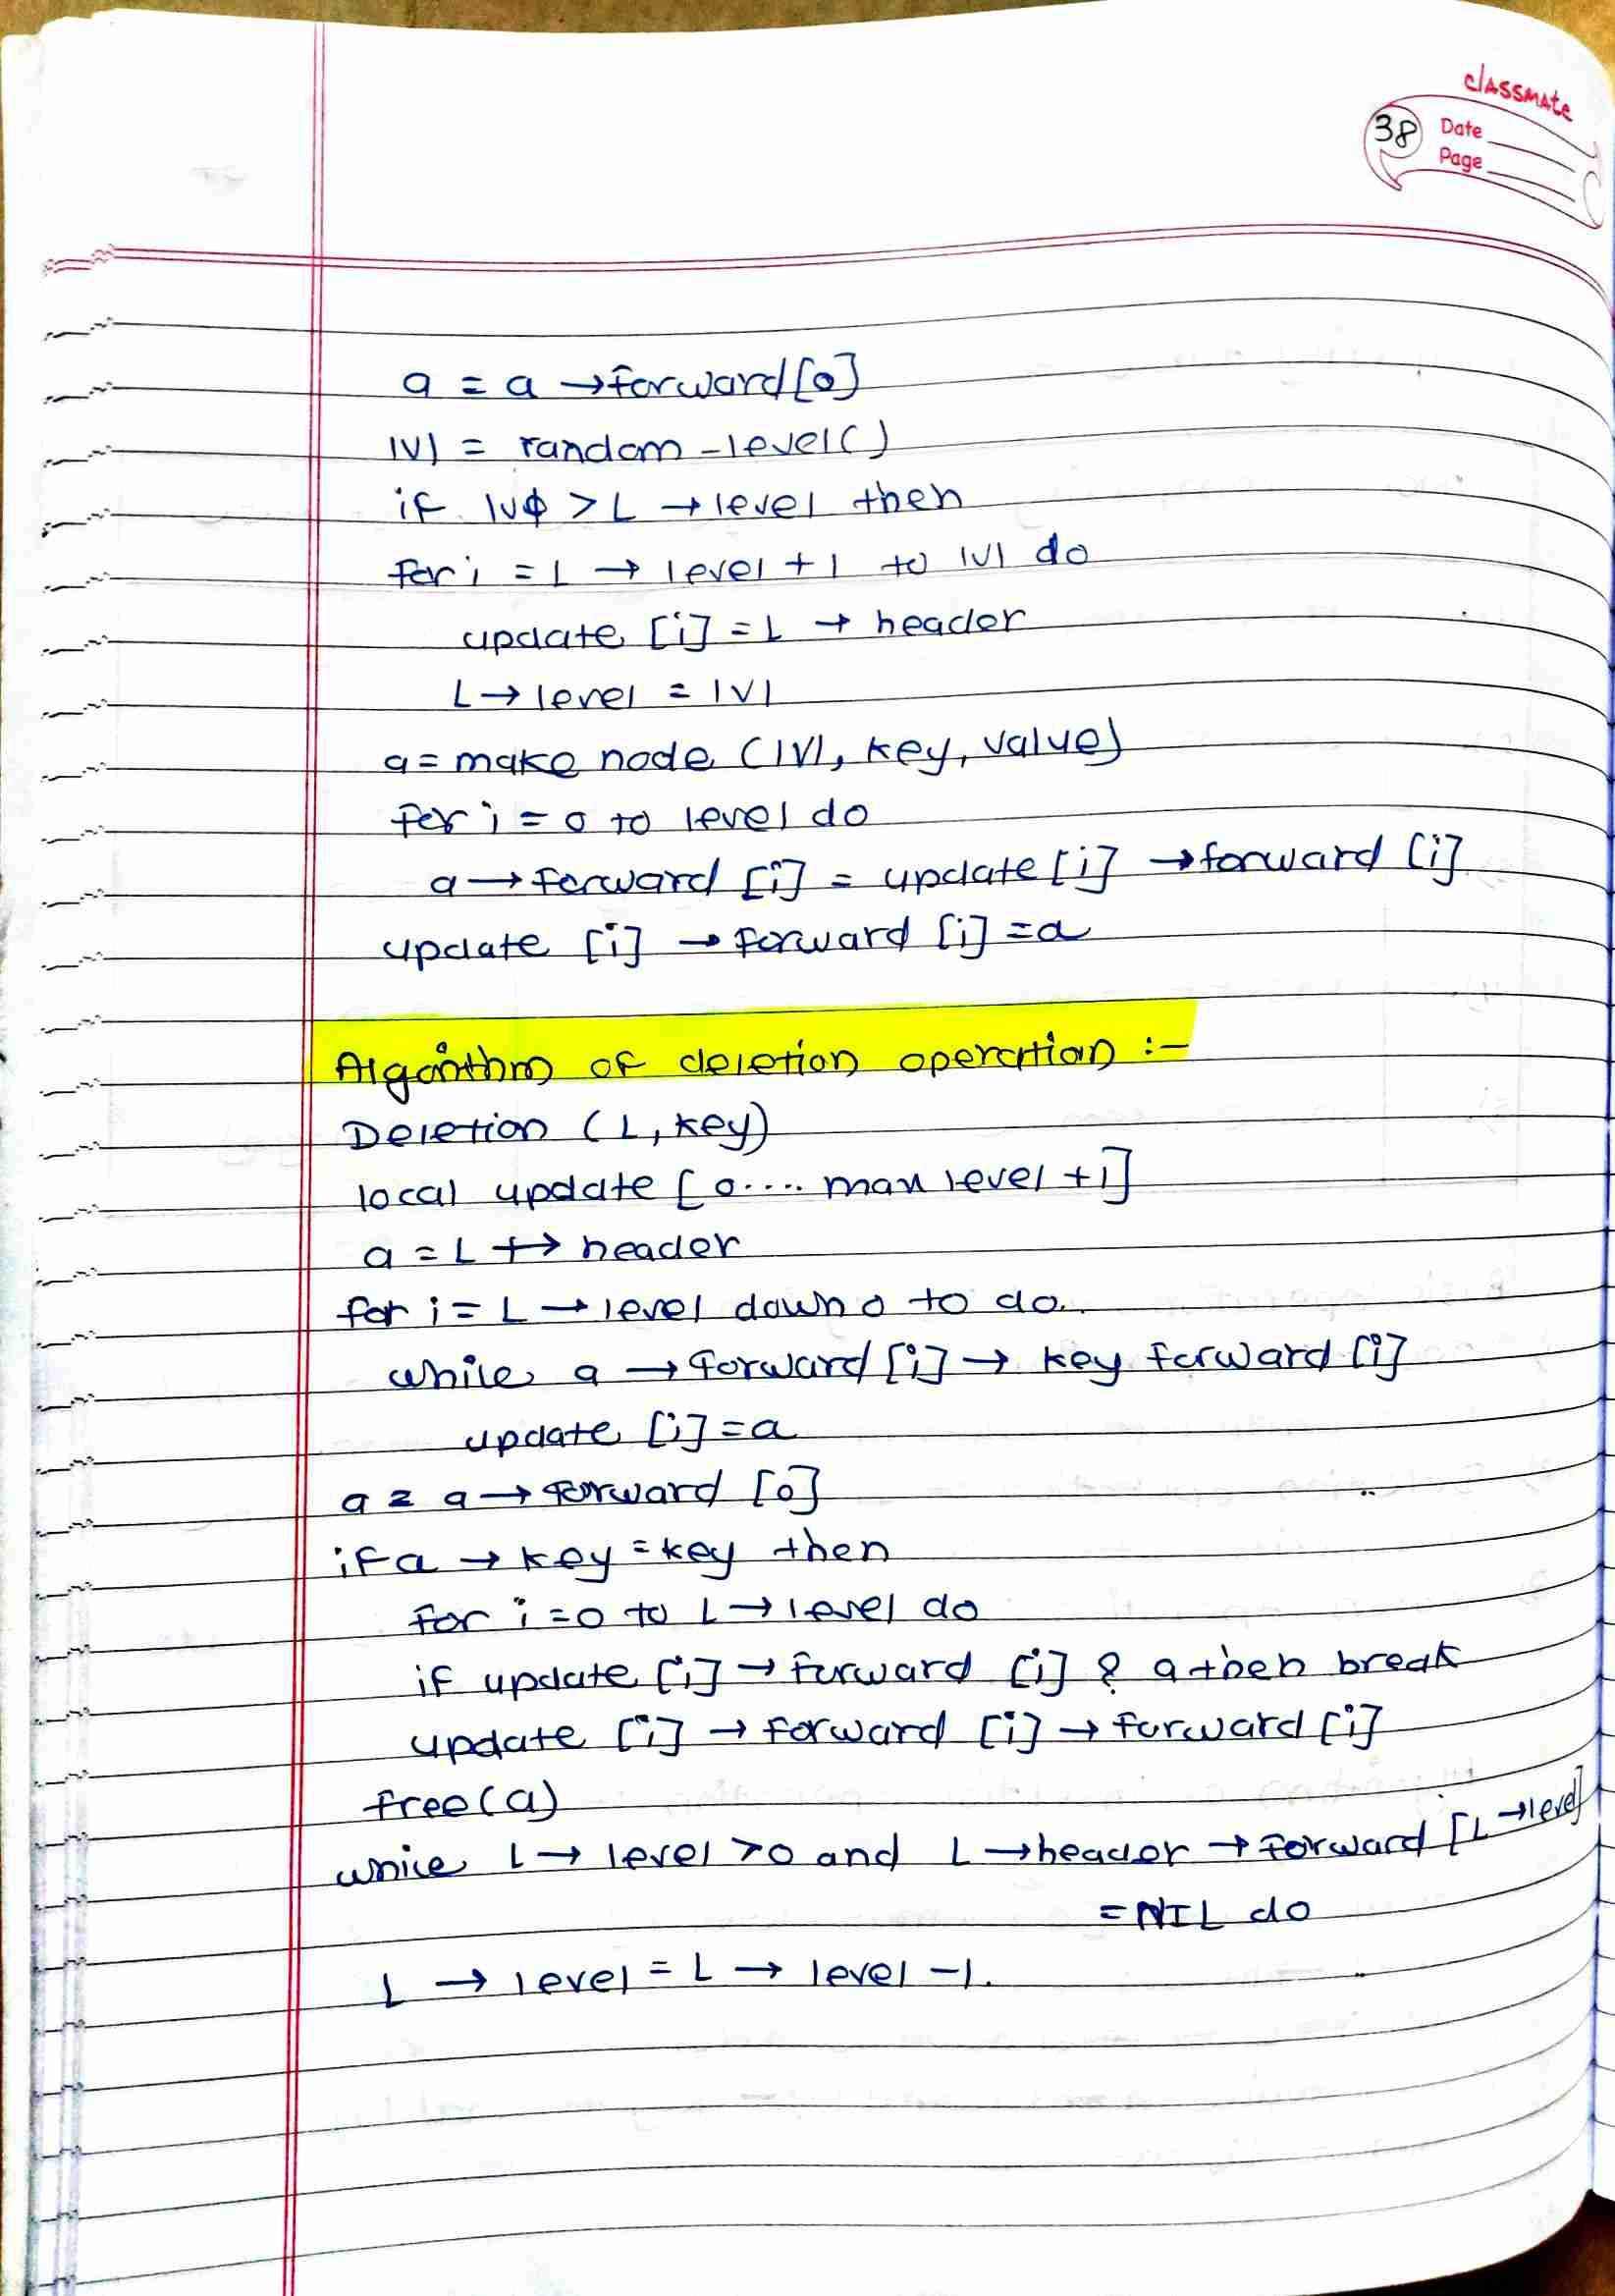 classmate
38 Date
Page
a = a →forward[0]
lvl = random-level()
if lvl > L → level then
for i = L → level + 1 to lvl do
update [i] = L → header
L → level = lvl
a = make node (lvl, key, value)
for i = 0 to level do
a → forward [i] = update [i] → forward [i]
update [i] → forward [i] = a
Algorithm of deletion operation :-
Deletion (L, key)
local update [0.... max level + 1]
a = L → header
for i = L → level down 0 to do.
while a → forward [i] → key forward [i]
update [i] = a
a = a → forward [0]
if a → key = key then
for i = 0 to L → level do
if update [i] → forward [i] ? a then break
update [i] → forward [i] → forward [i]
free(a)
while L → level > 0 and L → header → forward [L → level]
= NIL do
L → level = L → level - 1.